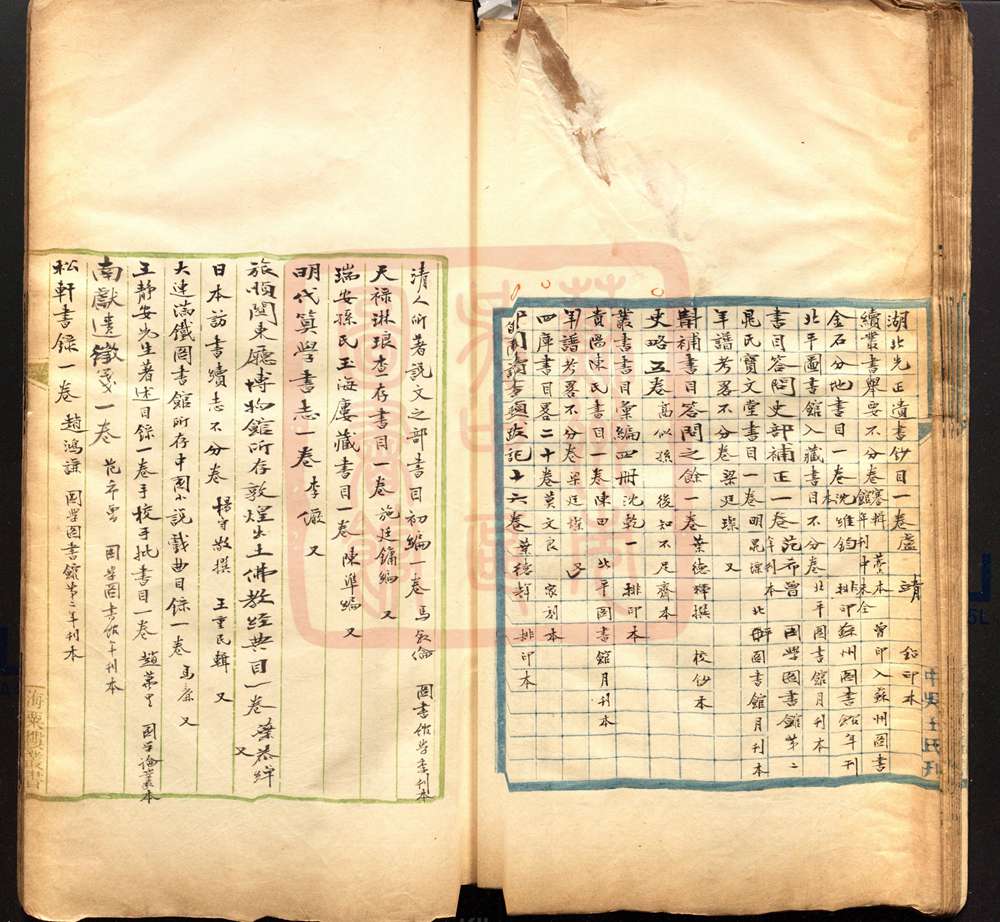 湖北先正遺書鈔目一卷 盧靖 鉛印本
續叢書舉要不分卷
金石分地書目一卷 沈維鈞 排印 蘇州圖書館年刊
北平圖書館入藏書目不分卷 北平圖書館月刊本
書目答問史部補正一卷 范希曾 國學圖書館第二年刊本
晁氏寶文堂書目一卷 明晁瑮 北平圖書館月刊本
年譜考畧不分卷 梁廷燦 又
斠補書目答問之餘一卷 葉德輝撰 校鈔本
史略五卷 高似孫 後知不足齋本
叢書書目彙編四冊 沈乾一 排印本
貴陽陳氏書目一卷 陳田 北平圖書館月刊本
年譜考畧不分卷 梁廷燦 又
四庫書目畧二十卷 莫文良 家刻本
郋園讀書題跋記十六卷 葉德輝 排印本
清人所著說文之部書目初編一卷 馬叙倫 圖書館學季刊本
天祿琳琅查存書目一卷 施廷鏞編 又
瑞安孫氏玉海廔藏書目一卷 陳準編 又
明代算學書志一卷 李儼 又
旅順關東廳博物館所存敦煌出土佛教經典目一卷 葉恭綽 又
日本訪書續志不分卷 楊守敬撰 王重民輯 又
大連滿鐵圖書館所存中國小說戲曲目錄一卷 馬廉 又
王靜安先生著述目錄一卷手校手批書目一卷 趙萬里 國學論叢本
南獻遺徵箋一卷 范希曾 國學圖書館年刊本
松軒書錄一卷 趙鴻謙 國學圖書館第二年刊本
海粟樓叢書